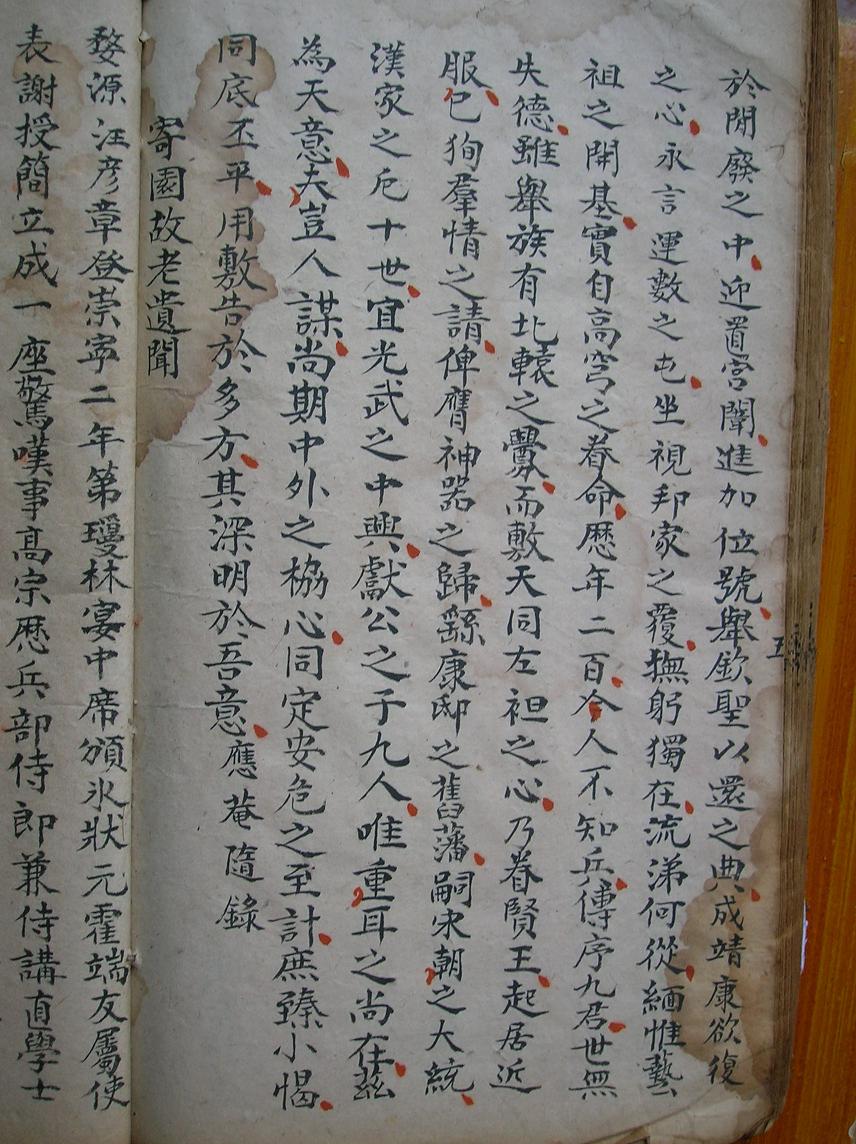 於閒廢之中迎置宮闈進加位號舉欽聖以還之典成靖康欲復
之心永言運數之屯坐視邦家之覆撫躬獨在流涕何從緬惟藝
祖之開基實自高穹之眷命歷年二百令人不知兵傳序九君世無
失德雖舉族有北轅之釁而敷天同左袒之心乃眷賢王起居近
服已狥羣情之請俾膺神器之歸繇康邸之舊藩嗣宋朝之大統
漢家之厄十世宜光武之中興獻公之子九人唯重耳之尚在茲
為天意夫豈人謀尚期中外之協心同定安危之至計庶臻小愒
同底丕平用敷告於多方其深明於吾意應菴隨錄
寄園故老遺聞
婺源汪彥章登崇寧二年第瓊林宴中席頒氷狀元霍端友屬使
表謝授簡立成一座驚嘆事高宗歷兵部侍郎兼侍講直學士
五